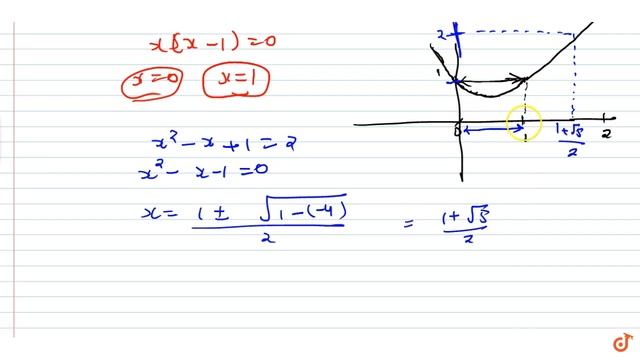 x(x-1)=0
x=0 x=1
x²-x+1=2
x²-x-1=0
x= 1± √1-(-4) / 2 = 1+√5 / 2
2
1
0 1 1+√5 / 2 2